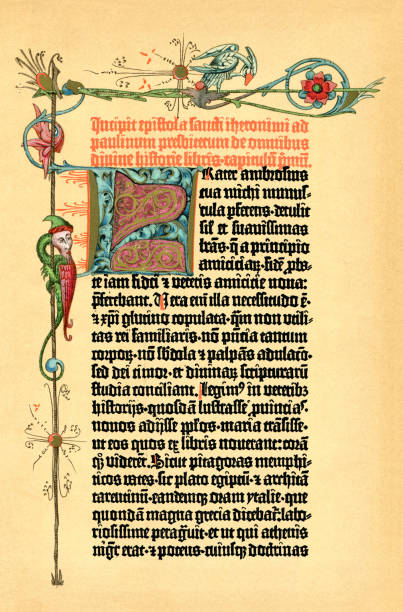 Incipit epistola sancti iheronimi ad
paulinum presbiterum de omnibus
divine historie libris. capitulū p̄mū.
Frater ambrosius
tua michi munus-
cula ꝑferens. detulit
sił et suavissimas
lrās. q̄ a principio
amiciciaꝝ. fidē ꝓba-
te iam fidei ⁊ veteris amicicie nova:
p̄ferebant. Vera eni illa necessitudo ē.
⁊ xp̄i glutino copulata. qm̄ non utili-
tas rei familiaris. nō p̄ncia tantum
corpoꝝ. nō sbdola ⁊ palpās adulaco.
sed dei timor. et diuinaꝝ scripturarū
studia conciliant. Legimꝰ in veteribꝫ
historijs. quosdā lustrasse ꝓuincias.
nouos adijsse ꝓplos. maria trāsisse.
ut eos quos ex libris nouerant: corā
qꝫ viderēt. Sicut pitagoras memphi-
ticos vates. sic plato egiptū. ⁊ architā
tarentinū. eandemqꝫ oram ytalie. que
quondā magna grecia dicebat᷑: labo-
riosissime peragrauit. et ut qui athenis
mgr̄ erat. ⁊ potens. cuiusqꝫ doctrinas